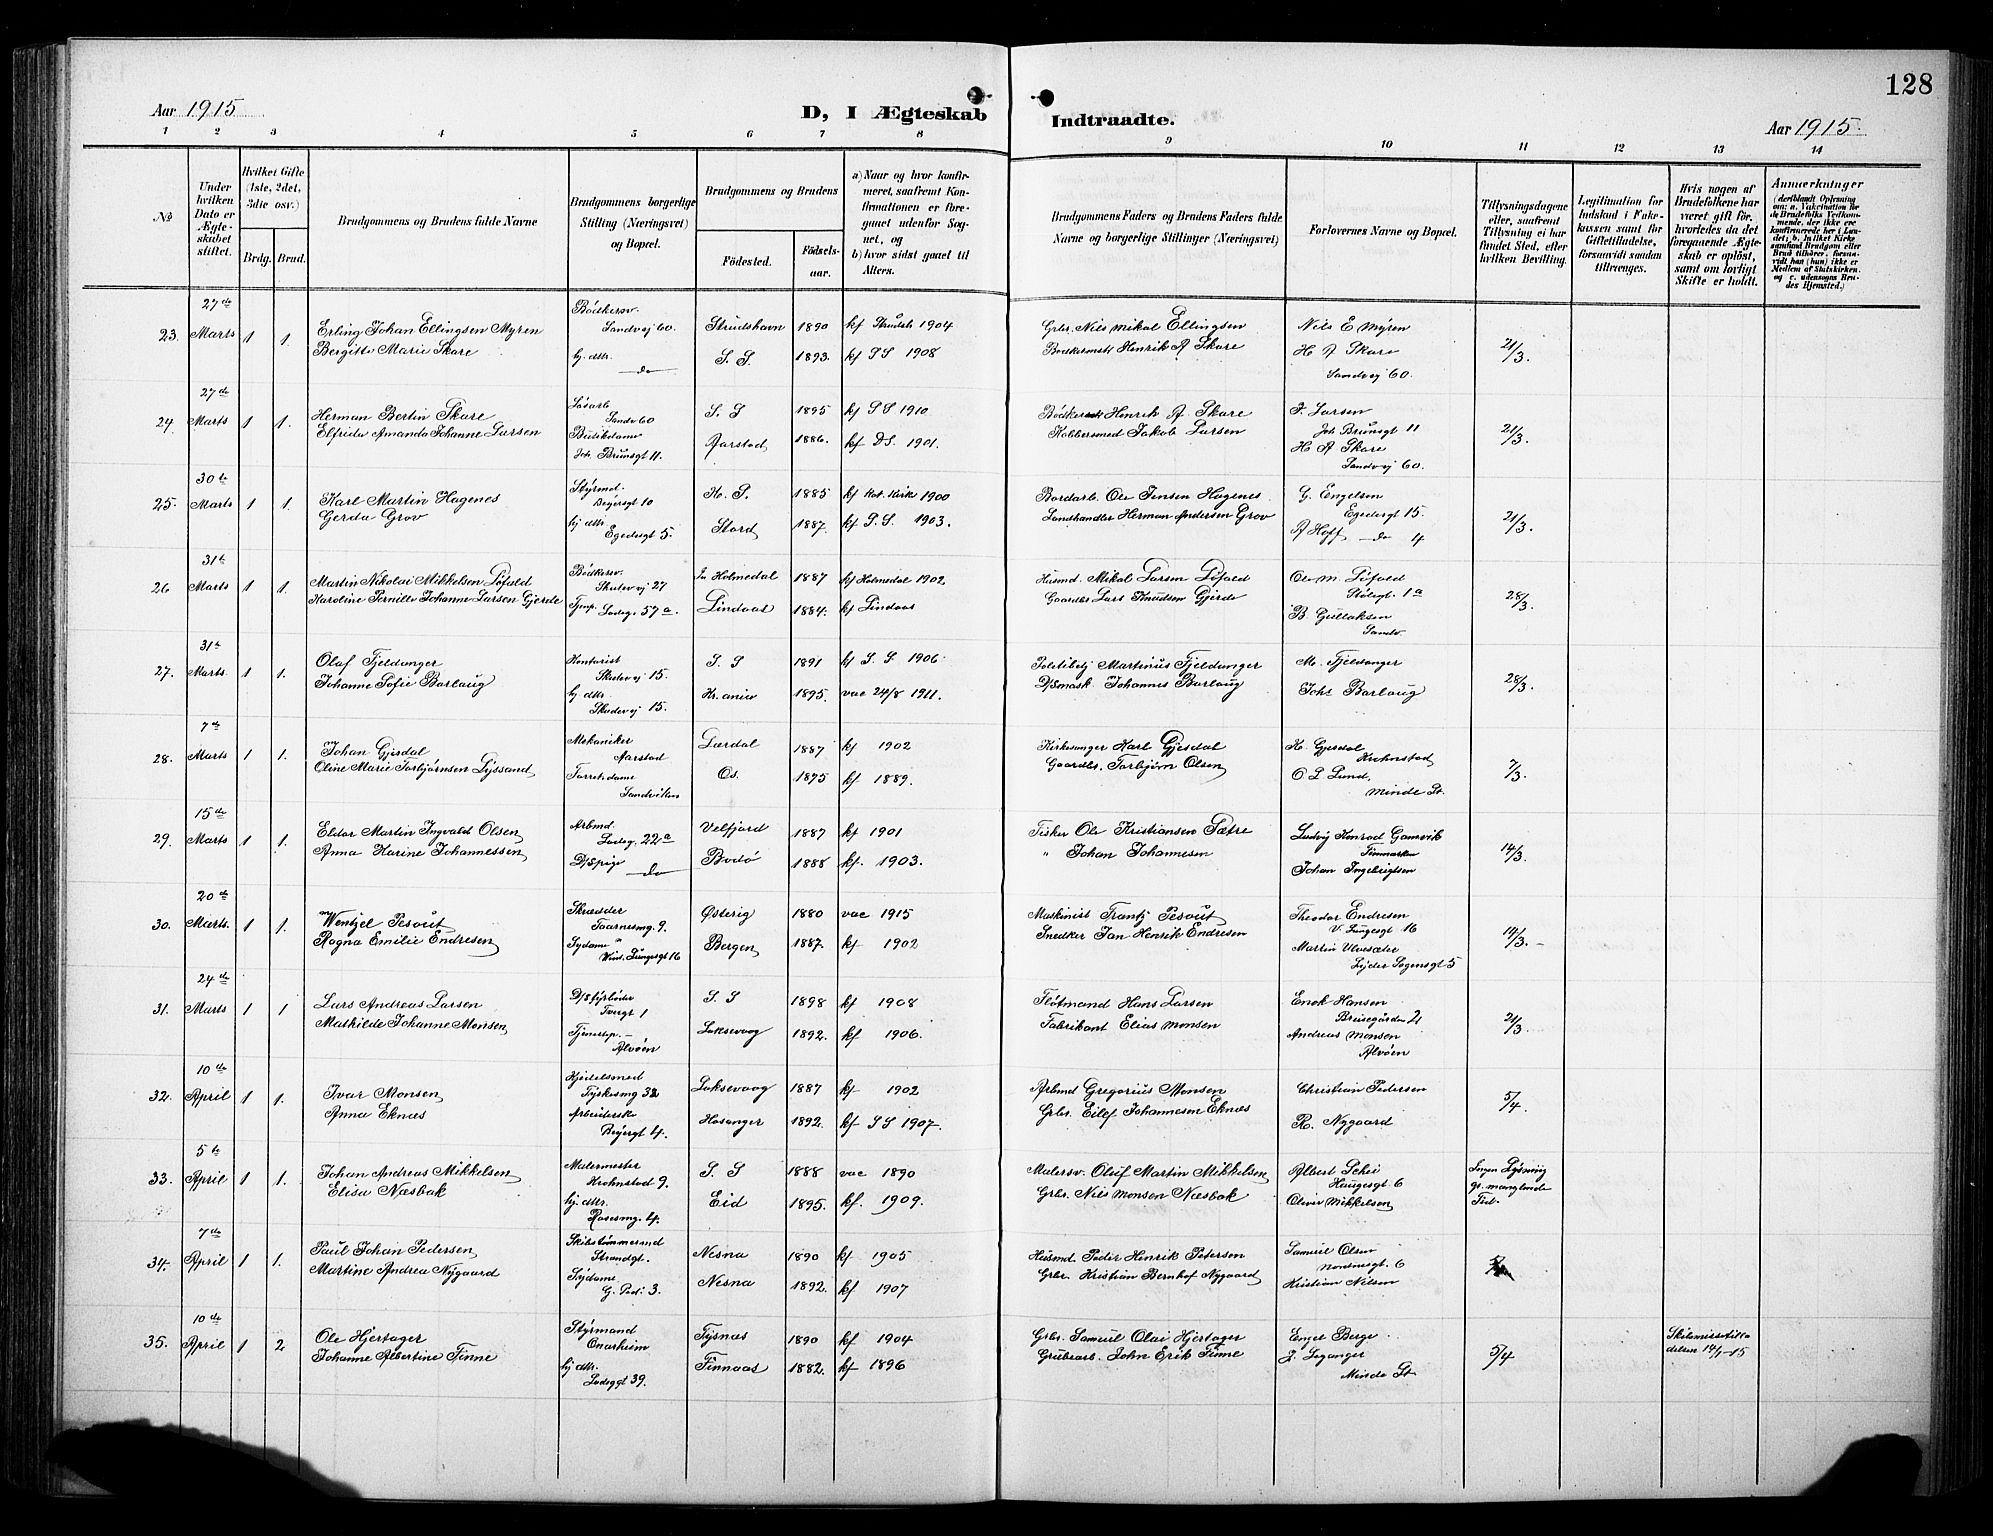 128
Aar 1915
D, I Ægteskab Indtraadte.
Aar 1915.
1 2 3 4 5 6 7 8 9 10 11 12 13 14
№
Under hvilken Dato er Ægteskabet stiftet.
Hvilket Gifte (1ste, 2det, 3die osv.)
Brdg. Brud.
Brudgommens og Brudens fulde Navne
Brudgommens borgerlige Stilling (Næringsvei) og Bopæl.
Brudgommens og Brudens
Födested. Födselsaar.
a) Naar og hvor konfirmeret, saafremt Konfirmationen er foregaaet udenfor Sognet, og
b) hvor sidst gaaet til Alters.
Brudgommens Faders og Brudens Faders fulde Navne og borgerlige Stillinger (Næringsvei)
Forlovernes Navne og Bopæl.
Tillysningsdagene eller, saafremt Tillysning ei har fundet Sted, efter hvilken Bevilling.
Legitimation for Indskud i Fakkassen samt for Giftetilladelse, forsaavidt saadan tiltrænges.
Hvis nogen af Brudefolkene har været gift för, hvorledes da det foregaaende Ægteskab er oplöst, samt om lovligt Skifte er holdt.
Anmærkninger
(deriblandt Oplysning om: a. Vakcination for de Brudefolks Vedkommende, der ikke ere konfirmerede her i Landet; b. hvilket Kirkesamfund Brudgom eller Brud tilhører, forsaavidt han (hun) ikke er Medlem af Statskirken, og c. udensogns Brudes Hjemsted.)
27de
23. Marts 1 1.
Erling Johan Ellingsen Myren
Bergitte Marie Skare
Bödkersv.
Sandvej 60.
hj. dttr.
do
Strudshavn 1890 kf Strudsh 1904
S. S. 1893. kf S S 1908
Grbr. Nils Mikal Ellingsen
Bödkermstr Henrik A Skare
Nils E Myren
H A Skare
Sandvej 60.
21/3.
27de
24. Marts 1 1.
Herman Bertin Skare
Elfrida Amanda Johanne Larsen
Løsarb
Sandv 60
Butikdame
Joh. Brunsgt 11.
S. S 1895 kf S S 1910
Aarstad 1886. kf D S. 1901.
Bödkermstr Henrik A. Skare
Kobbersmed Jakob Larsen
J. Larsen
Joh Brunsgt 11
H A Skare
Sandvej 60.
21/3.
30te
25. Marts 1 1.
Karl Martin Hagenes
Gerda Grov
Styrmd.
Beyersgt 10
hj dttr
Egedesgt 5.
K. S. 1885 kf Kot. Kirk 1900
Stord 1887. kf S. S. 1903.
Bordarb. Ole Jensen Hagenes
Landhandler Herman Andersen Grov
G. Engelsen
Egedesgt 15.
A Hoff do 4
21/3.
31te
26 Marts 1 1.
Martin Nikolai Mikkelsen Løfald
Karoline Pernille Johanne Larsen Gjerde
Bødkersv.
Skutevej 27
Tjnp. Ladeg. 57a.
In Holmedal 1887 kf Holmedal 1902.
Lindaas 1884. kf Lindaas
Husmd. Mikal Larsen Løfald
Gaardbr Lars Knudsen Gjerde
Ole M. Løfald
Stølegt. 1a
B. Gullaksen
Sandv.
28/3.
31te
27. Marts. 1 1.
Olaf Fjeldanger
Johanne Sofie Barlaug
Kontorist
Skutevej 15.
hj dttr.
Skutevej 15.
S. S 1891 kf S. S. 1906.
Kr.ania 1895. vac 24/8 1911.
Politibetj Martinus Fjeldanger
D/Smask. Johannes Barlaug
M. Fjeldanger
Johs Barlaug
28/3.
7de
28. Marts 1 1.
Johan Gjesdal
Oline Marie Torbjørnsen Lyssand
Mekaniker
Aarstad
Forretn.dame
Sandviken
Lærdal 1887 kf 1902
Os. 1875 kf 1889.
Kirkesanger Karl Gjesdal
Gaardbr. Torbjørn Olsen
K. Gjesdal
Krohnstad
O. L Lund,
Minde St.
7/3.
15de
29. Marts 1 1.
Eldor Martin Ingvald Olsen
Anna Karine Johannessen
Arbmd.
Ladeg. 22a
D/Spige
do
Velfjord 1887 kf 1901
Bodø 1888 kf. 1903.
Fisker Ole Kristiansen Sætre
" Johan Johannesen
Ludvig Konrad Gamvik
Finmarken
Johan Ingebrigtsen
14/3.
20de
30. Marts. 1 1.
Wentzel Pesout
Ragna Emilie Endresen
Skræedder
Taarnesmg. 9.
Sydame
Vind. Lungesgt 16
Østerig 1880 vac 1915
Bergen 1887. kf 1902
Maskinist Frantz Pesout
Snedker Jan Henrik Endresen
Theodor Endresen
V. Lungesgt 16
Martin Ulvesæter
Lyder Sagensgt 5
14/3.
24de
31. Marts 1 1
Lars Andreas Larsen
Mathilde Johanne Monsen
D/Sfyrbøder
Tvergt 1
Tjenestep.
Alvøen
S. S 1898 kf 1908
Laksevaag 1892. kf 1906.
Fløtmand Hans Larsen
Fabrikant Elias Monsen
Enok Hansen
Brusegården 2
Andreas Monsen
Alvøen
21/3.
10de
32. April 1 1.
Ivar Monsen
Anna Eknæs
Kjedelsmed
Tyskesmg 32
Arbeiderske
Beyergt 4.
Laksevaag 1887 kf 1902
Hosanger 1892. kf S S 1907.
Arbmd Gregorius Monsen
Grbr. Eilef Johannesen Eknæs
Christian Pedersen
R. Nygaard
5/4.
5te
33. April 1 1.
Johan Andreas Mikkelsen
Elisa Næsbak
Malermester
Krohnstad 9.
hj. dttr.
Rosesmg. 4.
S. S 1888 vac 1890
Eid 1895. kf. 1909.
Malersv. Oluf Martin Mikkelsen
Grbr. Nils Monsen Næsbak
Albert Schei
Haugesgt 6
Oliver Mikkelsen
Ingen Lysning
gr. manglende
Tid.
7de
34. April 1 1.
Paul Johan Pedersen
Martine Andrea Nygaard
Skibstømmermd
Strandgt.
Sydame
G. Ped: 3.
Nesna 1890 kf 1905
Nesna 1892. kf 1907
Husmd Peder Henrik Petersen
Grbr. Kristian Bernhof Nygaard
Samuel Olsen
Nordnesgt. 6
Kristian Nilsen
10de
35. April 1 2
Ole Hjertager
Johanne Albertine Finne
Styrmand
Onarheim
hj dttr.
Ladeggt 39.
Tysnæs 1890 kf 1904
Finnaas 1882. kf 1896
Grbr. Samuel Olai Hjertager
Grubearb. John Erik Finne
Engel Berge
J. Leganger
Minde St.
5/4
Skilsmissetilladelsen 14/1-15